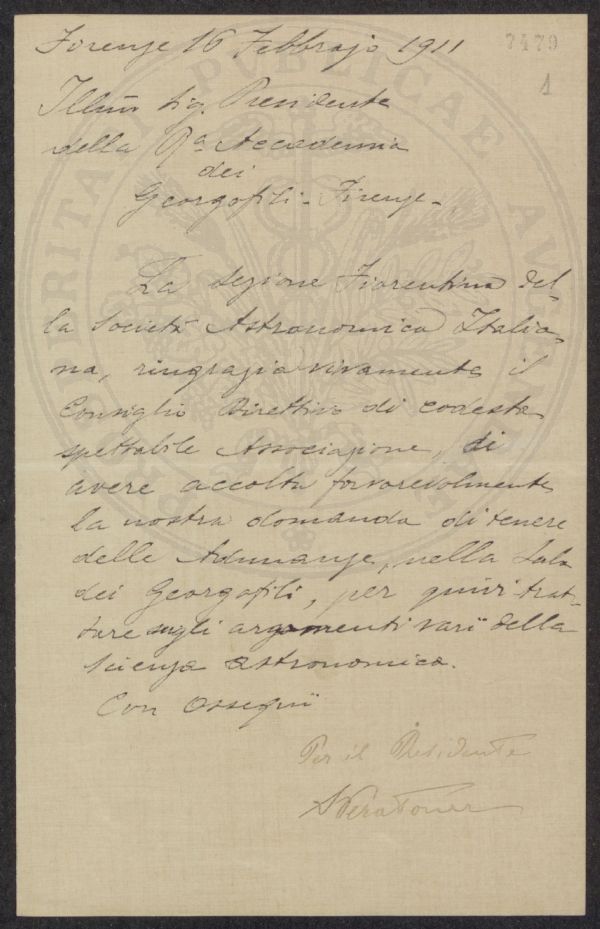 Firenze 16 Febbrajo 1911
7479
1
Illmo Sig. Presidente
della Ra Accademia
dei
Georgofili - Firenze -
La Sezione Fiorentina del-
la Società Astronomica Italia-
na, ringrazia vivamente il
Consiglio Direttivo di codesta
spettabile Associazione, di
avere accolta favorevolmente
la nostra domanda di tenere
delle Adunanze, nella Sala
dei Georgofili, per quivi trat-
tare sugli argomenti varî della
Scienza astronomica.
Con Ossequî
Per il Presidente
PUBLICAE